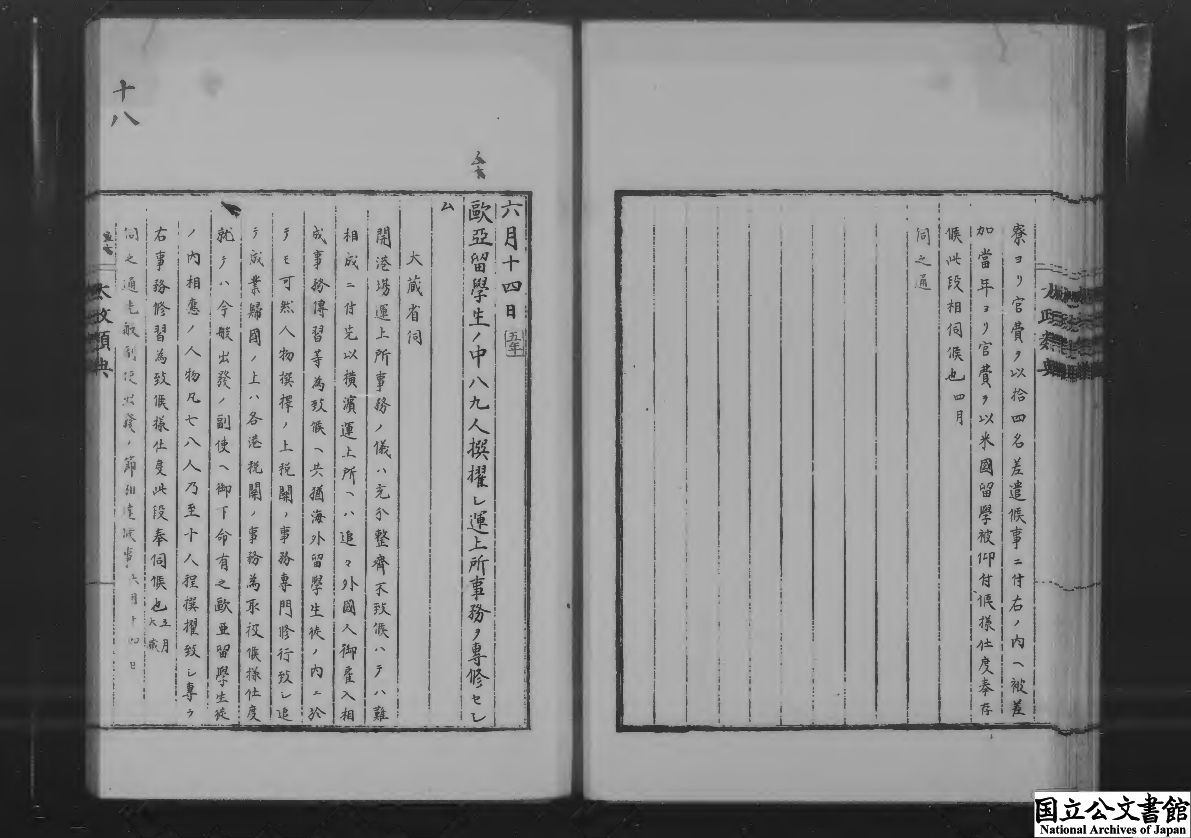 寮ヨリ官費ヲ以拾四名差遣候事ニ付右ノ内ヘ被差
加當年ヨリ官費ヲ以米國留學被仰付候様仕度奉存
候此段相伺候也四月
伺之通
十八
六月十四日 五年
歐亞留學生ノ中八九人撰擢シ運上所事務ヲ專修セシ
ム
大蔵省伺
開港場運上所事務ノ儀ハ充分整齊不致候ハテハ難
相成ニ付先以横濱運上所ヘハ追々外國人御雇入相
成事務傳習等為致候ヘ共猶海外留學生徒ノ内ニ於
テモ可然人物撰擇ノ上税関ノ事務専門修行致シ追
テ成業歸國ノ上ハ各港税関ノ事務為取扱候様仕度
就テハ今般出發ノ副使ヘ御下命有之歐亜留學生徒
ノ内相應ノ人物凡七八人乃至十人程撰擢致シ専ラ
右事務修習為致候様仕度此段奉伺候也 五月 大蔵
伺之通尤最副使出發ノ節相達候事 六月十四日
太政類典
国立公文書館
National Archives of Japan